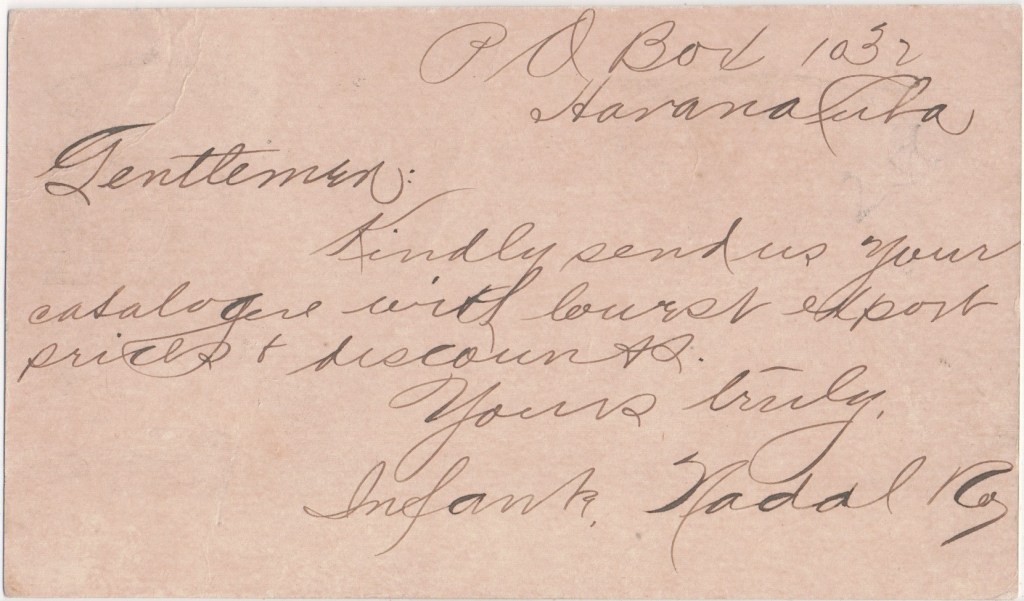 P O Box 1032
Havana Cuba
Gentlemen:
Kindly send us your
catalogue with lowest export
prices & discounts.
Yours truly,
Infante, Nadal